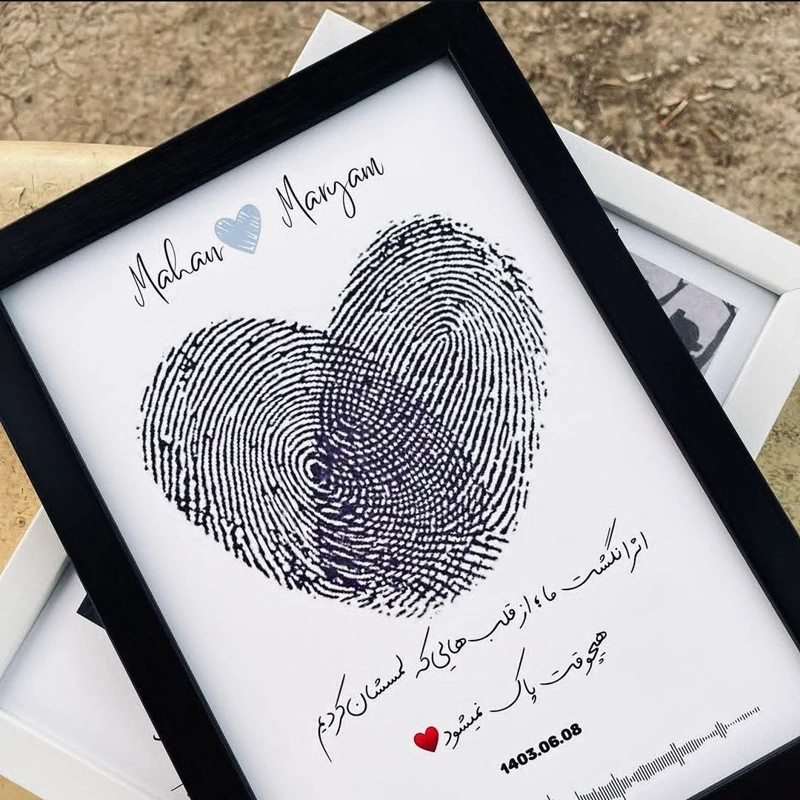 Mahan Maryam
اثر انگشت ما، از قلب هایی که لمسشان کردیم
هیچوقت پاک نمیشود
1403.06.08